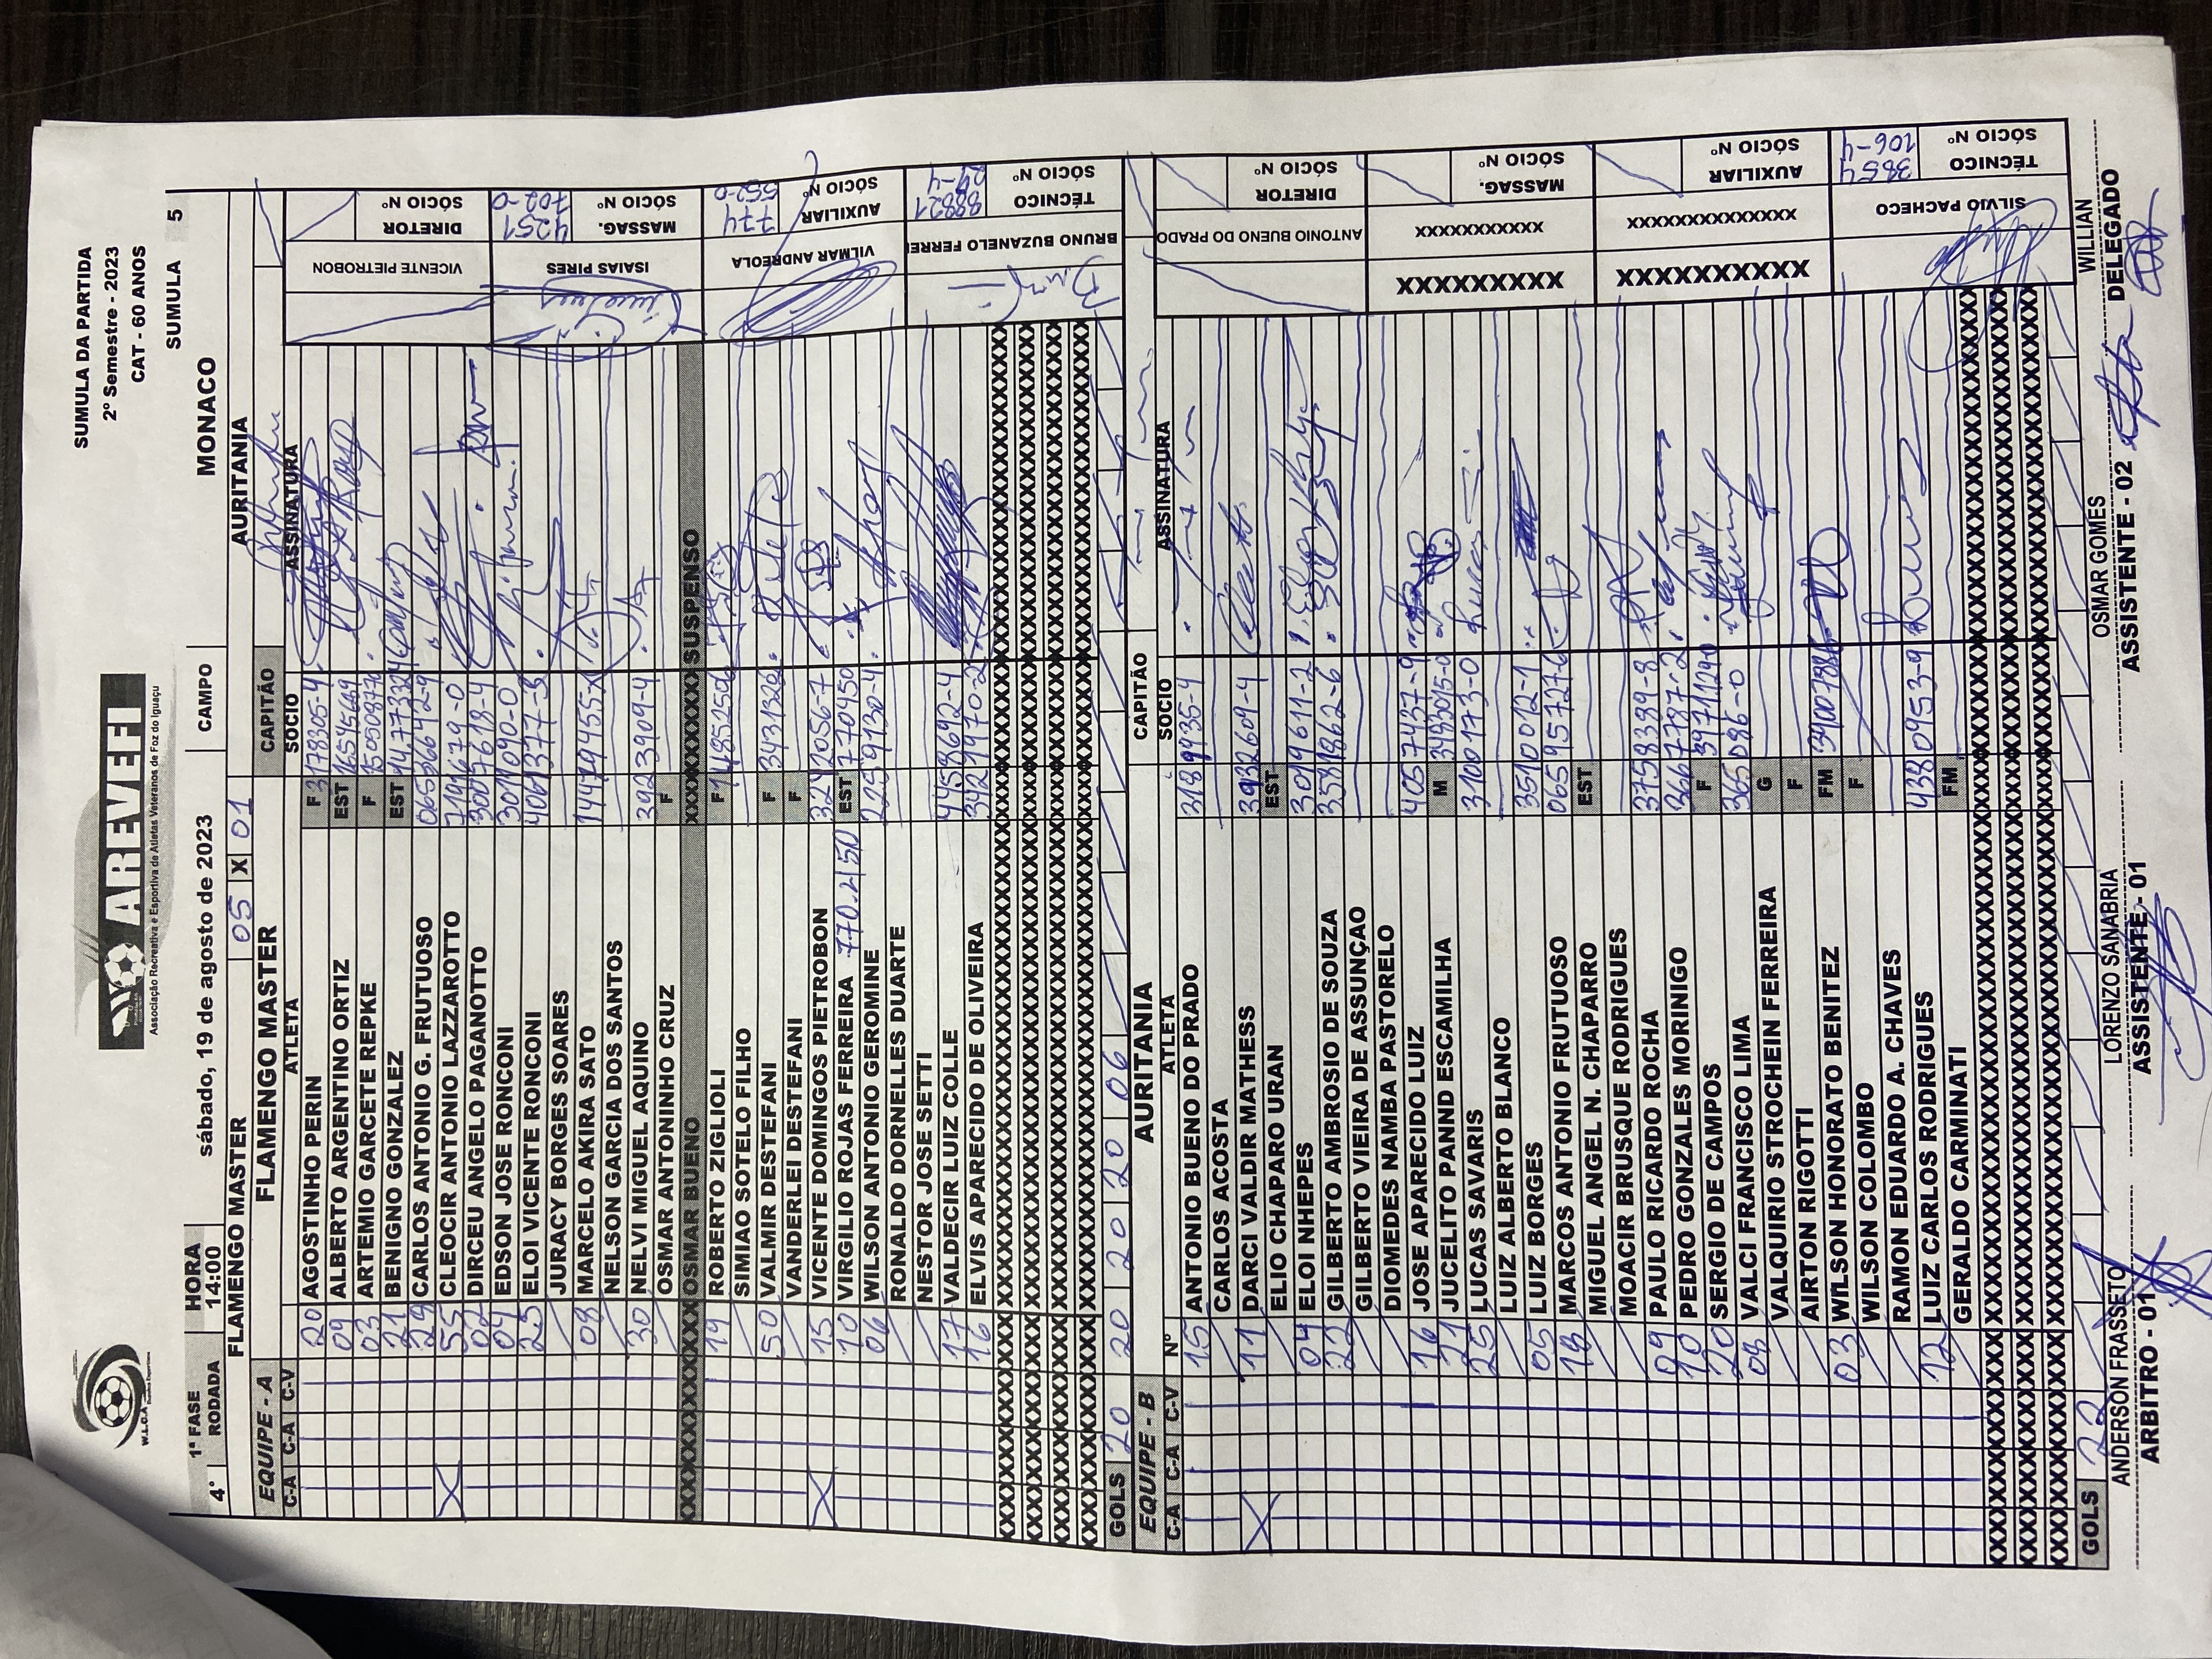 W.L.C.A
AREVEFI
Associação Recreativa e Esportiva de Atletas Veteranos de Foz do Iguaçu
SUMULA DA PARTIDA
2º Semestre - 2023
CAT - 60 ANOS
4° 1ª FASE RODADA
HORA 14:00
sábado, 19 de agosto de 2023
CAMPO MONACO
SUMULA 5
FLAMENGO MASTER 05 X 01 AURITANIA
EQUIPE - A FLAMENGO MASTER CAPITÃO
C-A C-A C-V ATLETA SOCIO ASSINATURA
20 AGOSTINHO PERIN F 3178305-4
09 ALBERTO ARGENTINO ORTIZ EST
03 ARTEMIO GARCETE REPKE F
21 BENIGNO GONZALEZ EST
29 CARLOS ANTONIO G. FRUTUOSO
X 55 CLEOCIR ANTONIO LAZZAROTTO
02 DIRCEU ANGELO PAGANOTTO 3007618-4
04 EDSON JOSE RONCONI 3011090-0
25 ELOI VICENTE RONCONI 4061377-3
JURACY BORGES SOARES
08 MARCELO AKIRA SATO
NELSON GARCIA DOS SANTOS
30 NELVI MIGUEL AQUINO 3923909-4
OSMAR ANTONINHO CRUZ F
XXXXXXXXXX OSMAR BUENO XXXXXXXXX SUSPENSO
19 ROBERTO ZIGLIOLI F
SIMIAO SOTELO FILHO
50 VALMIR DESTEFANI F 3431326
VANDERLEI DESTEFANI F
X 15 VICENTE DOMINGOS PIETROBON
10 VIRGILIO ROJAS FERREIRA 770.2150 EST 7702150
06 WILSON ANTONIO GEROMINE 2259130-4
RONALDO DORNELLES DUARTE
NESTOR JOSE SETTI
17 VALDECIR LUIZ COLLE 4458692-4
16 ELVIS APARECIDO DE OLIVEIRA 3429970-2
GOLS 20 20 20 20 06
VICENTE PIETROBON DIRETOR SÓCIO Nº
ISAIAS PIRES MASSAG. SÓCIO Nº 4251702-0
VILMAR ANDREOLA AUXILIAR SÓCIO Nº 774552-0
BRUNO BUZANELO FERREI TÉCNICO SÓCIO Nº
EQUIPE - B AURITANIA CAPITÃO
C-A C-A C-V Nº ATLETA SOCIO ASSINATURA
15 ANTONIO BUENO DO PRADO 3189935-4
CARLOS ACOSTA
X 11 DARCI VALDIR MATHESS 3932609-4
ELIO CHAPARO URAN EST
04 ELOI NHEPES 3019611-2
22 GILBERTO AMBROSIO DE SOUZA 3581862-6
GILBERTO VIEIRA DE ASSUNÇAO
DIOMEDES NAMBA PASTORELO
16 JOSE APARECIDO LUIZ 4057437-9
21 JUCELITO PAND ESCAMILHA M 3483015-0
25 LUCAS SAVARIS 3100173-0
LUIZ ALBERTO BLANCO
05 LUIZ BORGES 3510012-1
18 MARCOS ANTONIO FRUTUOSO 06595727-6
MIGUEL ANGEL N. CHAPARRO EST
MOACIR BRUSQUE RODRIGUES
09 PAULO RICARDO ROCHA 3758399-8
10 PEDRO GONZALES MORINIGO 3667787-2
20 SERGIO DE CAMPOS F
08 VALCI FRANCISCO LIMA 365086-0
VALQUIRIO STROCHEIN FERREIRA G
AIRTON RIGOTTI F
03 WILSON HONORATO BENITEZ FM
WILSON COLOMBO F
RAMON EDUARDO A. CHAVES
12 LUIZ CARLOS RODRIGUES 4380953-9
GERALDO CARMINATI FM
GOLS 22
ANTONIO BUENO DO PRADO DIRETOR SÓCIO Nº
XXXXXXXXXX XXXXXXXXXXX MASSAG. SÓCIO Nº
XXXXXXXXXXX XXXXXXXXXXXXX AUXILIAR SÓCIO Nº
SILVIO PACHECO TÉCNICO SÓCIO Nº 3854106-4
ANDERSON FRASSETO LORENZO SANABRIA OSMAR GOMES WILLIAN
ARBITRO - 01 ASSISTENTE - 01 ASSISTENTE - 02 DELEGADO